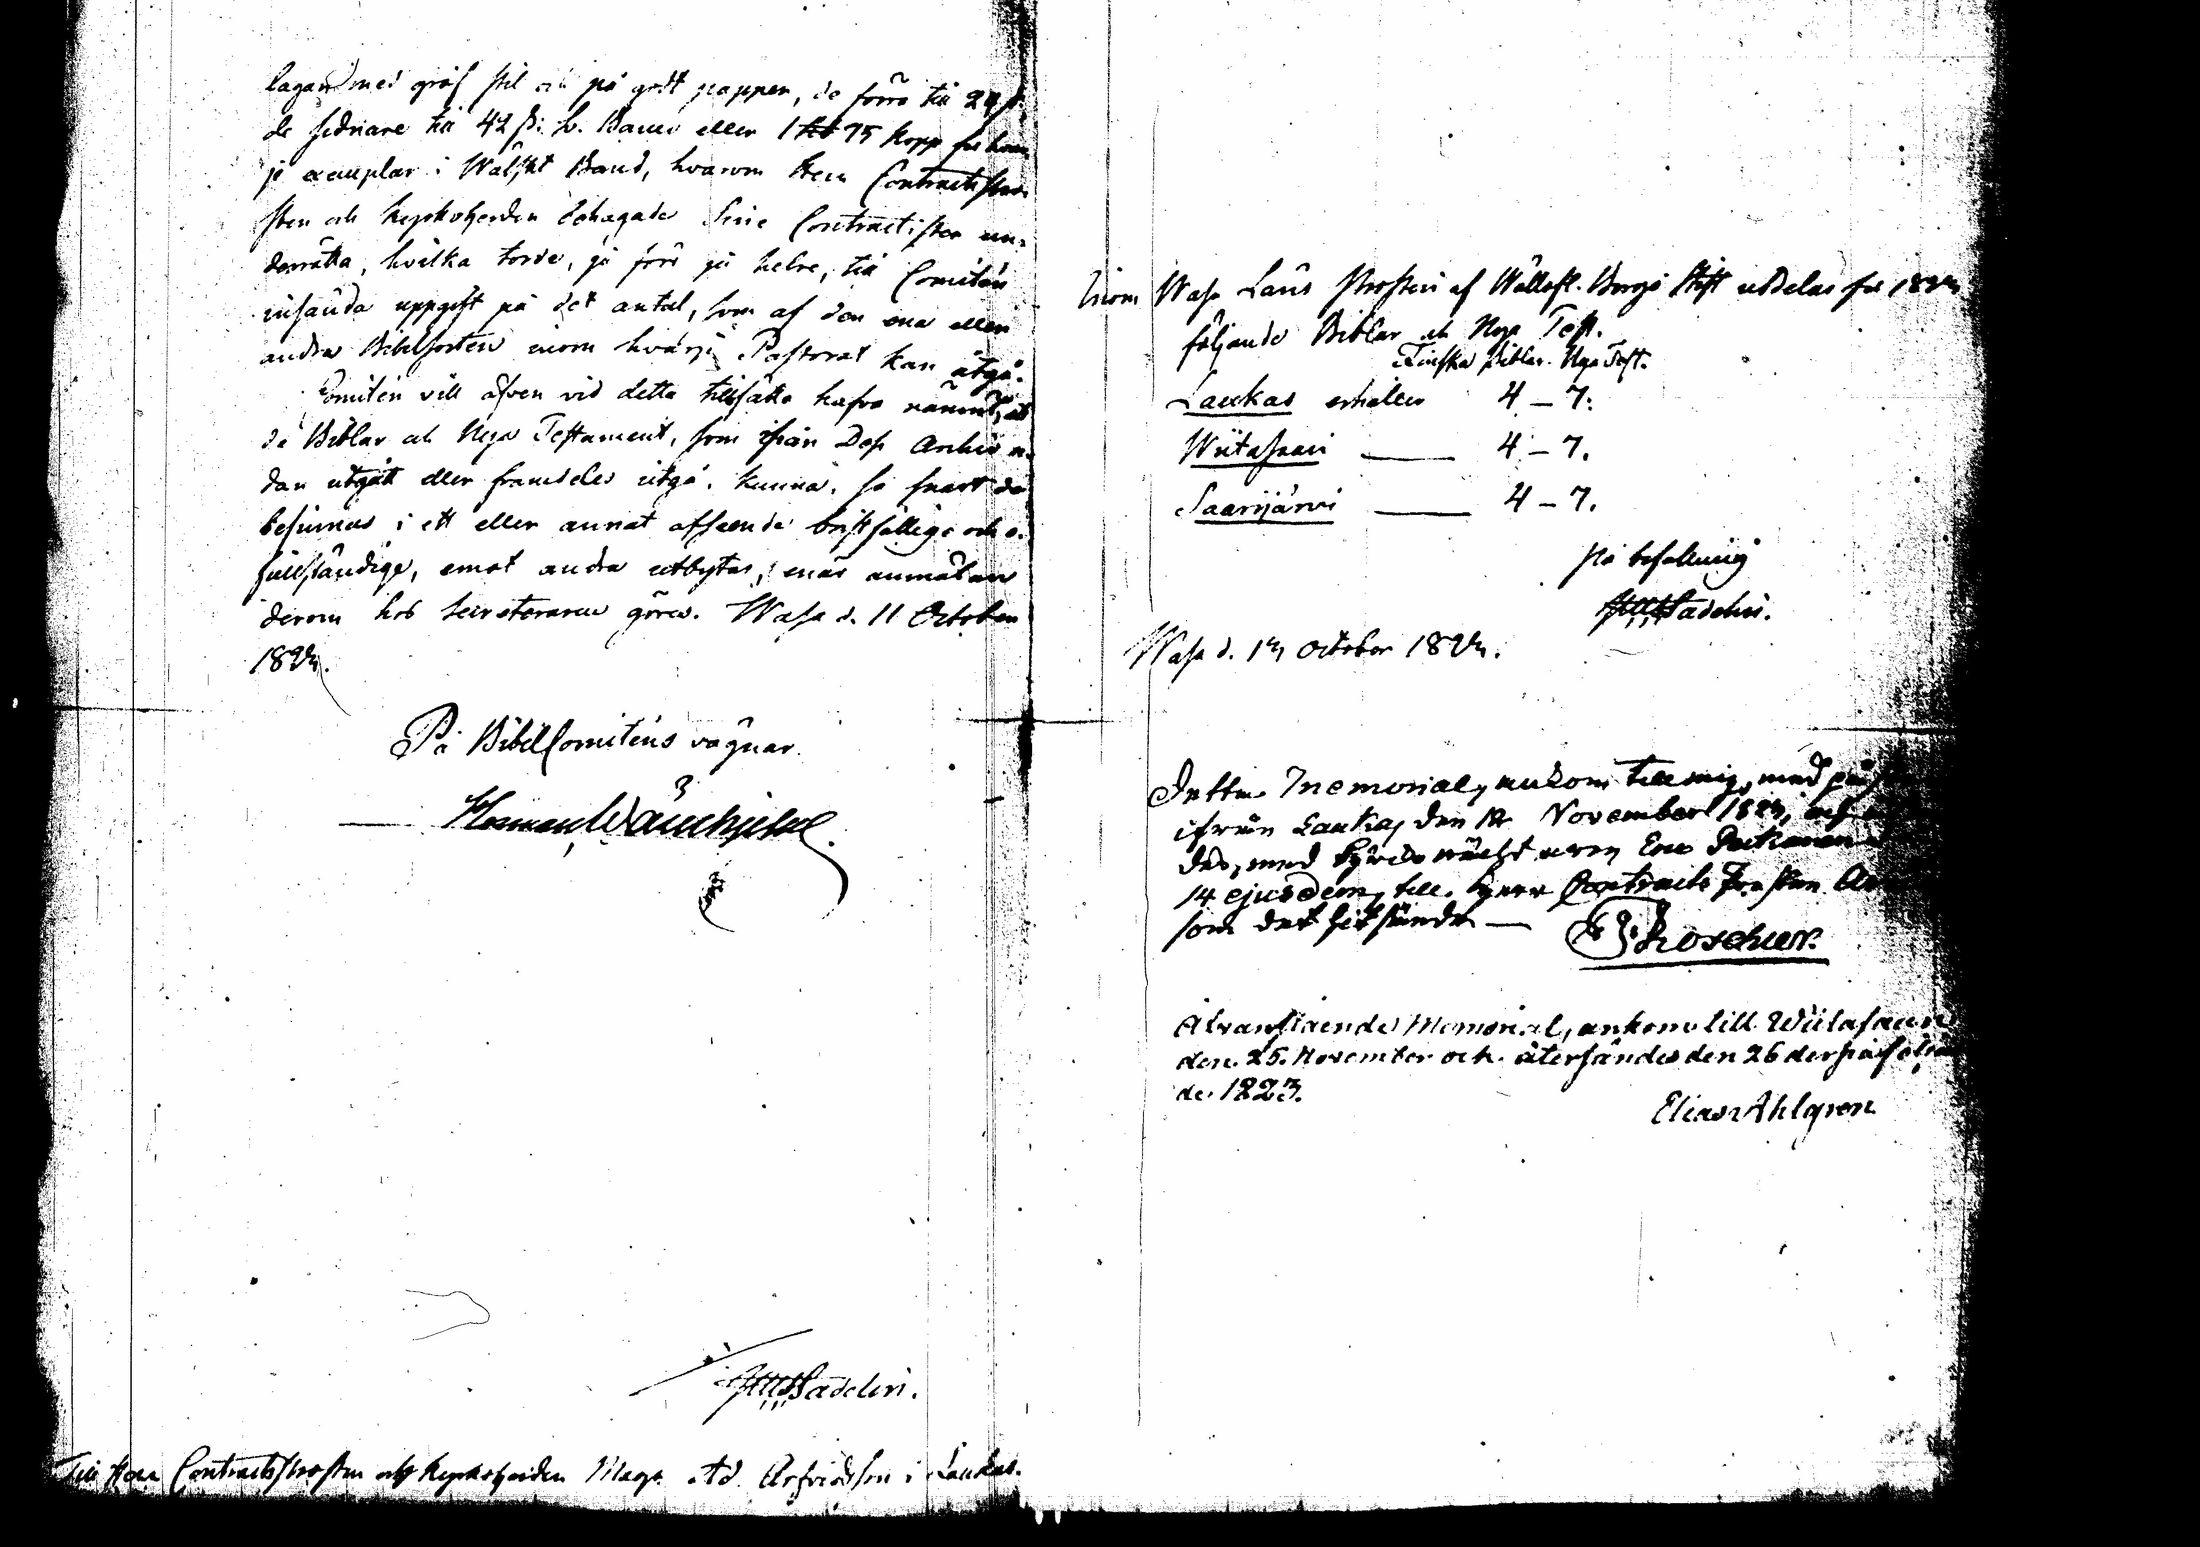 lagar med gröf stil och på godt papper, de förra till 24 s.
de sednare till 42 s. B. Banco eller 1 75 kop för hvar
je exemplar i Wälskt Band, hvarom Herr Contractspro-
sten och Kyrkoherden behagade Sine Contractister un-
derrätta, hvilka torde, ju förr ju helre, till Comitén
insända uppgift på det antal, som af den ena eller
andra Bibelsorten inom hvarje Pastorat kan åtgå.
Comitén vill äfven vid detta tillfälle hafva nämnt, at
de Biblar och Nya Testament, som ifrån Dess Archiv re-
dan utgått eller framdeles utgå, kunna, så snart de
befinnas i ett eller annat afseende bristfällige och o-
fullständige, emot andra utbytas, enär anmälan
derom hos Secreteraren göres. Wasa d. 11 October
1823.
På BibelComiténs vägnar.
Till Herr Contractsprosten och Kyrkoherden Mag. Ad. Arfvidsson i Laukas.
Inom Wasa Läns Prosteri af Wälloft. Borgå Stift utdelas för 1823
följande Biblar och Nya Test.
Finska Biblar. Nya Test.
Laukas erhåller 4 – 7.
Wiitasaari —— 4 – 7.
Saarijärvi —— 4 – 7.
På befallning
Sadelin.
Wasa d. 13 October 1823.
Detta Memorial, ankom till mig, med
ifrån Laukas den 12 November 1823,
des, med
14 ejusdem, till Herr Contracts Prosten
som det hit sände —
Roschier.
Ofvanstående Memorial, ankom till Wiitasaari
den 25. November och återsändes den 26 derpåföljan
de 1823.
Elias Ahlgren
Sadelin.